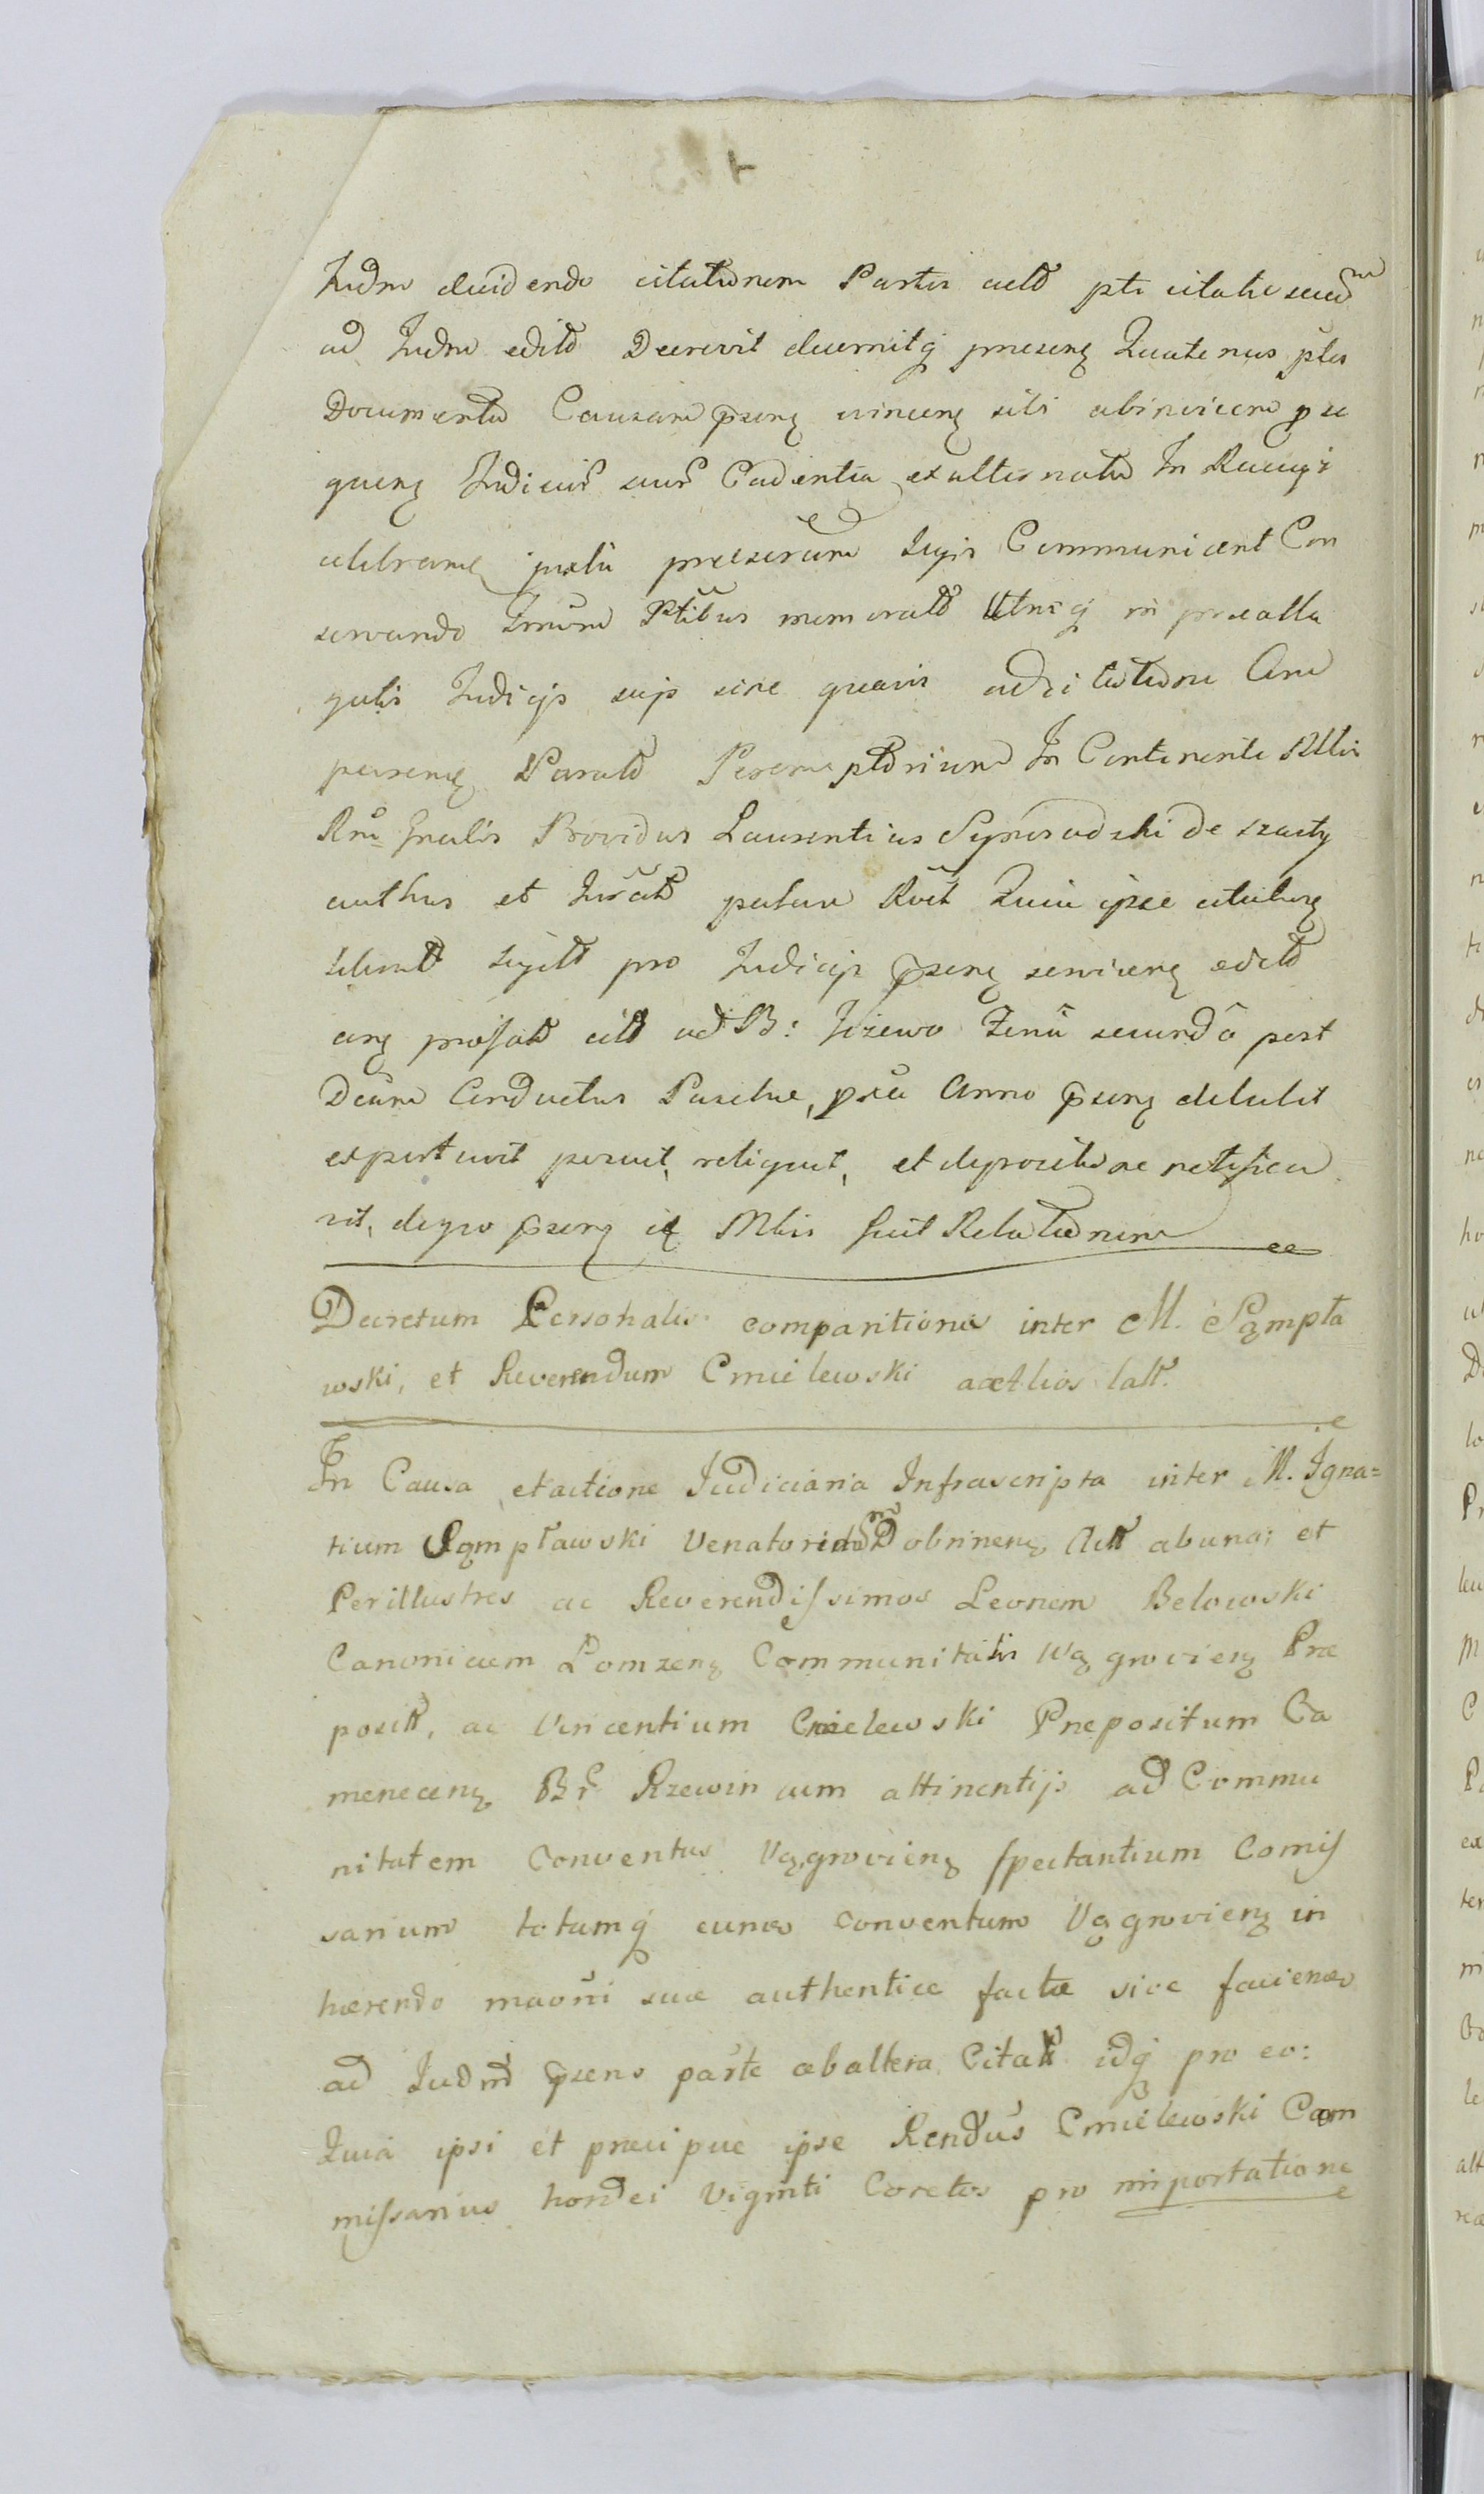 Judm deidendo citationem Partis actt pti citatae secud m
ad Judm editt Decrevit decernitq praesenq Quatenus ptes
Documenta Causam psenq vincenq sibi abinvicem p se
quenq Judicior suor Cadentia exalternata In Raciqz
celebranq juxta praescrum Legis Communicent Con
servando Tmum Ptibus memoratt Utriq in praealle
gatis Judicijs supr sine quavis adcitatione Com
parenq Paratt Peremptorium In Continenti Mltis
Rnu Gnalis Providus Laurentius Syneradzki de szasty
authus et Juratt palam Rcit Quia ipse citationq
literatt sigitt pro Judicijs psenq servicenq editt
anq praefatt citt ad B: Jizewo Feria secunda post
Dcum Conductus Paschae, pxa Anno psenq detulit
exportavit posuit, reliquit, et depositione notifica
vit, deqvo psenq iq Mltis fecit Relationem
Decretum Personalis comparitionis inter M. Sąmpła
wski, et Reverendum Cmielewski acAlios latt.
In Causa et actione Judiciaria Infrascripta inter M. Igna=
tium Sąmpławski Venatorem Dobrinenq Actt abuna; et
Perillustres ac Reverendissimos Leonem Belowski
Canonicum Lomzenq Communitatis Wągrovienq Prae
positt, ac Vincentium Cmielewski Prepositum Ca
menecenq Br Rzewin cum attinentijs ad Commu
nitatem Conventus Vągrovienq spectantium Comis
sarium totumq eunq conventum Vągrovienq in
haerendo maoni suae authenticae factae sive faciend
ad Judm psens parte abaltera Citatt idq pro eo:
Quia ipsi et praecipue ipse Rendus Cmielewski Com
missarius hordei viginti Coretos pro importatione